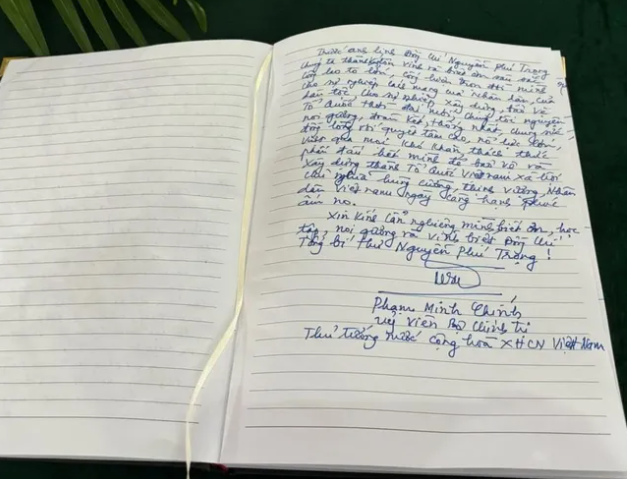 Trước anh linh Đồng chí Nguyễn Phú Trọng
chúng ta thành kính vĩnh và biết ơn sâu sắc
công lao to lớn, cống hiến trọn đời mình
cho sự nghiệp cách mạng của Nhân dân, của
dân tộc, cho sự nghiệp xây dựng, bảo vệ
Tổ Quốc thời đại mới. Chúng tôi nguyện
noi gương, đoàn kết, thống nhất, chung sức
đồng lòng với quyết tâm cao, nỗ lực lớn,
vượt qua mọi khó khăn, thách thức
phấn đấu hết mình để bảo vệ và
xây dựng thành Tổ Quốc Việt nam xã hội
chủ nghĩa hùng cường, thịnh vượng, Nhân
dân Việt nam ngày càng hạnh phúc
ấm no.
Xin kính cẩn nghiêng mình biết ơn, học
tập, noi gương và vĩnh biệt Đồng chí
Tổng bí thư Nguyễn Phú Trọng!
Phạm Minh Chính
Uỷ viên Bộ Chính Trị
Thủ tướng nước cộng hoà XHCN Việt Nam